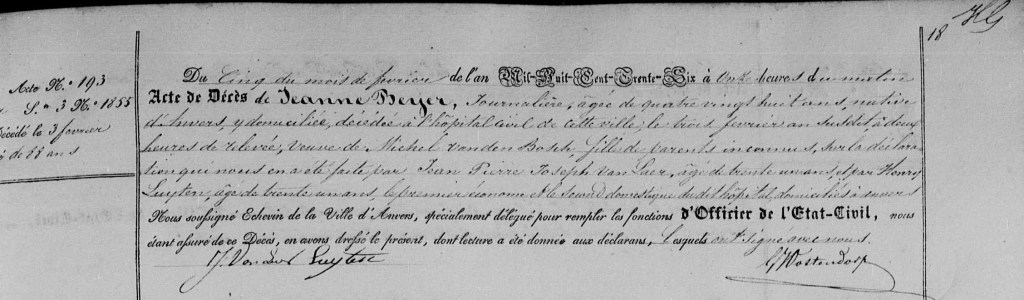 18 HG
Acte N.º 193
S.ⁿ 3 N.º 1855
Décédé le 3 fevrier
é de 88 ans
Du Cinq du mois de fevrier de l'an Mil-Huit-Cent-Trente-Six à onze heures du matin
Acte de Décès de Jeanne Beyer, Journalière, âgée de quatre vingt huit ans, native
d'Anvers, y domiciliée, décédée à l'hôpital Civil de cette ville, le trois fevrier an susdit, à deux
heures de relevée, Veuve de Michel Vanden Bosch, fille de parents inconnus, sur la déclara-
tion qui nous en a été faite par Jean Pierre Joseph Van Laer, âgé de trente un ans, et par Henry
Luyten, âgé de trente un ans, le premier économe et le second domestique du dit hôpital, domiciliés à anvers
Nous soussigné Echevin de la Ville d'Anvers, spécialement délégué pour remplir les fonctions d'Officier de l'Etat-Civil, nous
étant assuré de ce Décès, en avons dressé le présent, dont lecture a été donnée aux déclarans, Lesquels ont signé avec nous.
Luyten